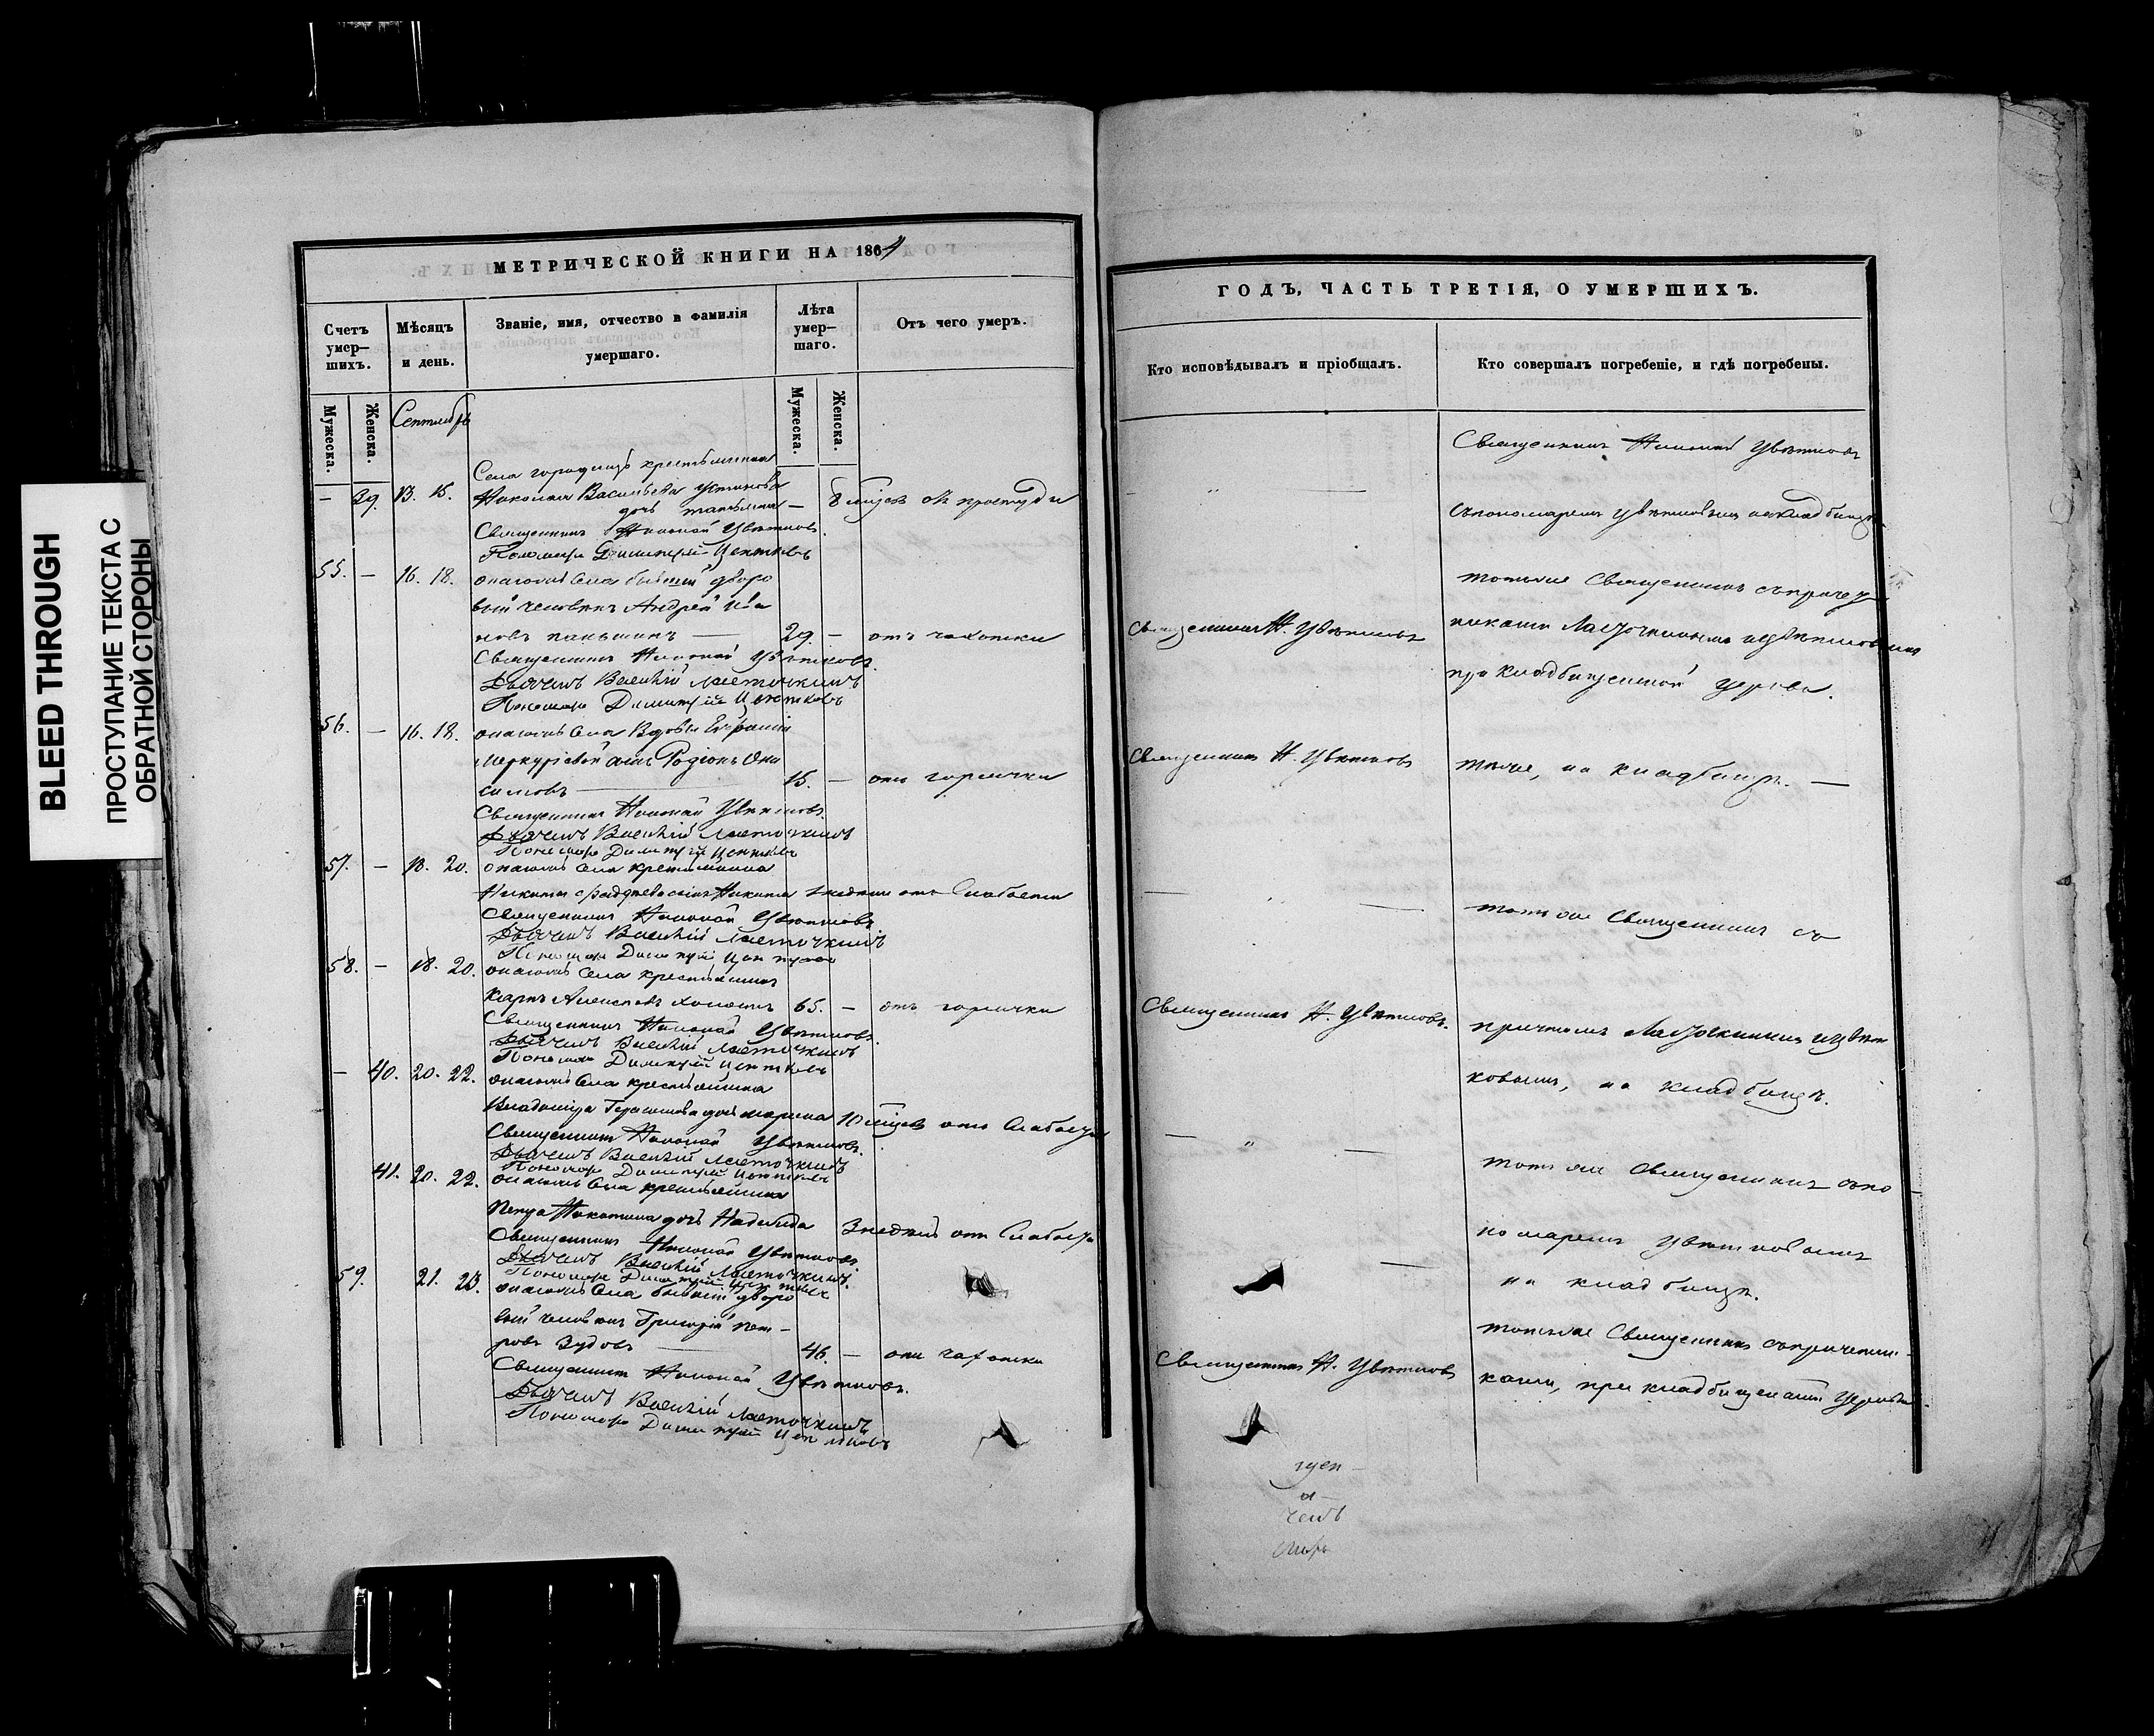 BLEED THROUGH
ПРОСТУПАНИЕ ТЕКСТА С
ОБРАТНОЙ СТОРОНЫ
МЕТРИЧЕСКОЙ КНИГИ НА 1864
Счетъ умер-шихъ.
Мѣсяцъ и день.
Званіе, имя, отчество и фамилія умершаго.
Лѣта умер-шаго.
Отъ чего умеръ.
Мужеска.
Женска.
Сентябрь
Мужеска.
Женска.
Села городищъ крестьянина
— 39. 13. 15. Николая Васильева Устинова — 8 мѣсев от простуды
дочь
Священникъ Николай Цвѣтковъ.
Пономарь Димитрій Цвѣтковъ
55. — 16. 18. онагожъ села бывшій дворо
вый человѣкъ Андрей Ива
новъ паньшинъ — 29. — отъ чахотки
Священникъ Николай Цвѣтковъ.
Дьячекъ Василій Ласточкинъ
Пономарь Димитрій Цвѣтковъ
56. — 16. 18. онагожъ села Вдовы Евфраніи
Меркуріевой сынъ Родіонъ Они
симовъ — 15. — отъ горячки
Священникъ Николай Цвѣтковъ
Дьячекъ Василій Ласточкинъ
Пономарь Димитрій Цвѣтковъ
57. — 18. 20. онагожъ села крестьянина
Никиты сынъ Никита недели отъ Слабости
Священникъ Николай Цвѣтковъ.
Дьячекъ Василій Ласточкинъ
Пономарь Димитрій Цвѣтковъ
58. — 18. 20. онагожъ села крестьянинъ
Карпъ Алексѣевъ 65. — отъ горячки
Священникъ Николай Цвѣтковъ.
Дьячекъ Василій Ласточкинъ
Пономарь Димитрій Цвѣтковъ
— 40. 20. 22. онагожъ села крестьянина
Владиміра Герасимова дочь марина 10 мѣсев отъ Слабости
Священникъ Николай Цвѣтковъ.
Дьячекъ Василій Ласточкинъ
Пономарь Димитрій Цвѣтковъ
41. 20. 22. онагожъ села крестьянина
Петра Никитина дочь Надежда 3 недѣль отъ Слабости
Священникъ Николай Цвѣтковъ.
Дьячекъ Василій Ласточкинъ.
Пономарь Димитрій Цвѣтковъ
59. 21. 23. онагожъ села бывшій дворо
вый человѣкъ Григорій Пет-
ровъ Зудовъ — 46. — отъ чахотки
Священникъ Николай Цвѣтковъ.
Дьячекъ Василій Ласточкинъ
Пономарь Димитрій Цвѣтковъ
ГОДЪ, ЧАСТЬ ТРЕТІЯ, О УМЕРШИХЪ.
Кто исповѣдывалъ и пріобщалъ.
Кто совершалъ погребеніе, и гдѣ погребены.
Священникъ Николай Цвѣтковъ
съ пономаремъ Цвѣтковымъ на кладбищѣ.
тотъже Священникъ съ причет
Священникъ Н. Цвѣтковъ
никами Ласточкинымъ и Цвѣтковымъ
при кладбищенской церкви.
Священникъ Н. Цвѣтковъ
тѣже, на кладбищѣ. —
тотъ же Священникъ съ
Священникъ Н. Цвѣтковъ.
причтомъ Ласточкинымъ и Цвѣт
ковымъ, на кладбищѣ.
тотъ же Священникъ съ по-
номаремъ Цвѣтковымъ
на кладбищѣ.
тотъже Священникъ съ причетни-
Священникъ Н. Цвѣтковъ
ками, при кладбищенской церкви.